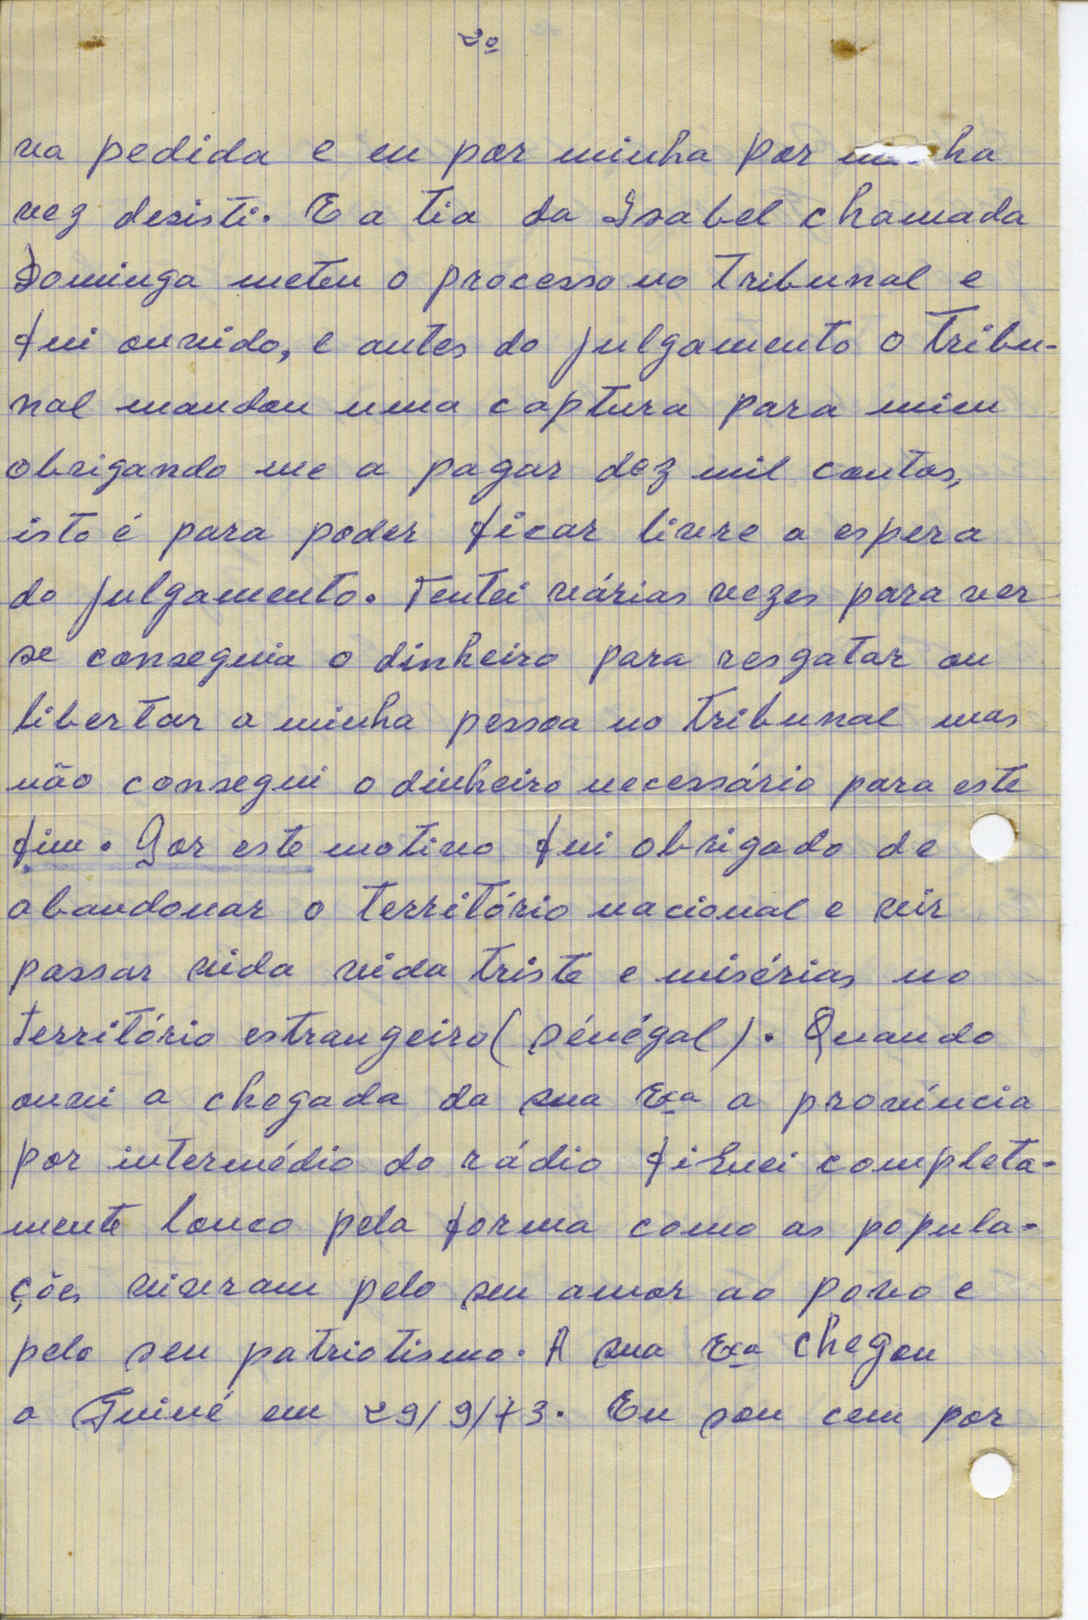 2º
va pedida e eu por minha por minha
vez desisti. E a tia da Isabel chamada
Dominga meteu o processo no Tribunal e
fui ouvido, e antes do julgamento o Tribu-
nal mandou uma captura para mim
obrigando me a pagar dez mil contos,
isto é para poder ficar livre a espera
do julgamento. Tentei várias vezes para ver
se conseguia o dinheiro para resgatar ou
libertar a minha pessoa no Tribunal mas
não consegui o dinheiro necessário para este
fim. Por este motivo fui obrigado de
abandonar o território nacional e vir
passar vida vida triste e misérias no
território estrangeiro (Sénégal). Quando
ouvi a chegada da sua Exa a província
por intermédio do rádio fiquei completa-
mente louco pela forma como as popula-
ções viveram pelo seu amor ao povo e
pelo seu patriotismo. A sua Exa chegou
a Guiné em 29/9/73. Eu sou cem por